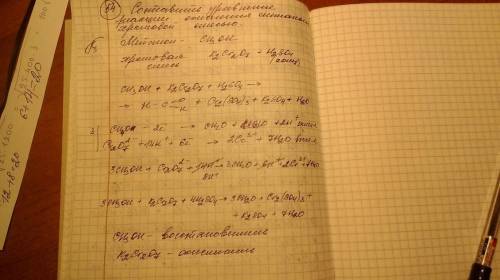 (14) Составить уравнение
реакции окисления метанола
хромовой смесью.
Метанол - CH₃OH
хромовая смесь K₂Cr₂O₇ + H₂SO₄ (конц)
CH₃OH + K₂Cr₂O₇ + H₂SO₄ →
→ H-C + Cr₂(SO₄)₃ + K₂SO₄ + H₂O
3 | CH₃OH - 2e → CH₂O + 2H⁺
Cr₂O₇²⁻ + 14H⁺ + 6e → 2Cr³⁺ + 7H₂O
3CH₃OH + Cr₂O₇²⁻ + 14H⁺ → 3CH₂O + 6H⁺ + 2Cr³⁺ + 7H₂O
8H⁺
3CH₃OH + K₂Cr₂O₇ + 4H₂SO₄ → 3CH₂O + Cr₂(SO₄)₃ +
+ K₂SO₄ + 7H₂O
CH₃OH - восстановитель
K₂Cr₂O₇ - окислитель
6+14=20
12+8=20